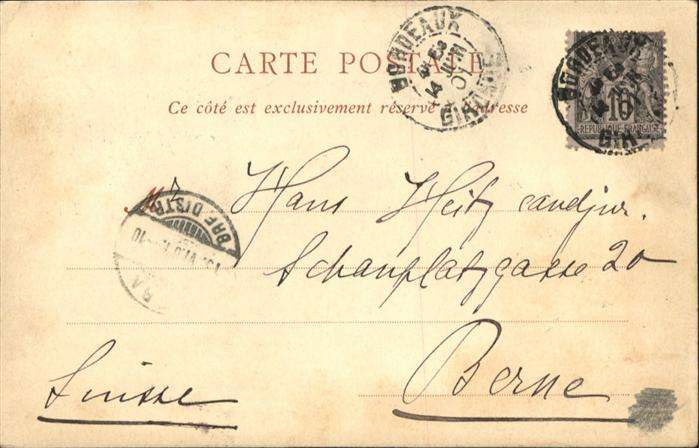 CARTE POSTALE
Ce côté est exclusivement réservé à l'adresse
BORDEAUX
14 JUIN
01
GIRONDE
BORDEAUX
10
REPUBLIQUE FRANÇAISE
Mr Hans Heitz cand jur.
Schauplatzgasse 20
Berne
Suisse
BRF. DISTR.